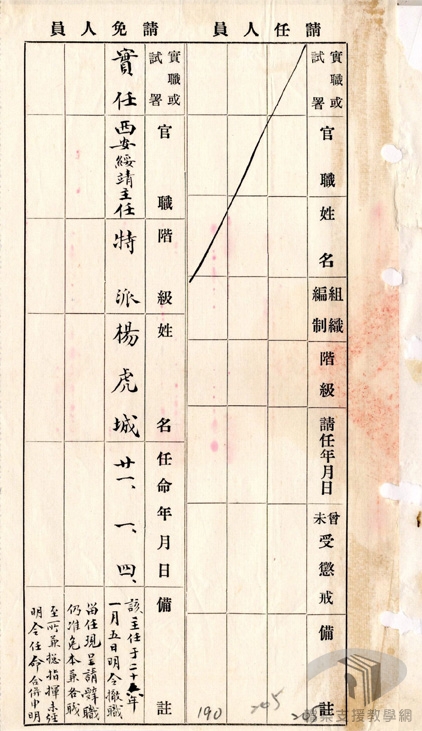 請任人員
實職或試署
官職
姓名
組織編制
階級
請任年月日
曾未受懲戒
備註
請免人員
實職或試署
官職
階級
姓名
任命年月日
備註
實任
西安綏靖主任
特派
楊虎城
廿一、一、四、
該主任于二十六年
一月五日明令撤職
留任現呈請辭職
仍准免本兼各職
至所兼總指揮未經
明令任命合併申明
190
205
205
檔案支援教學網